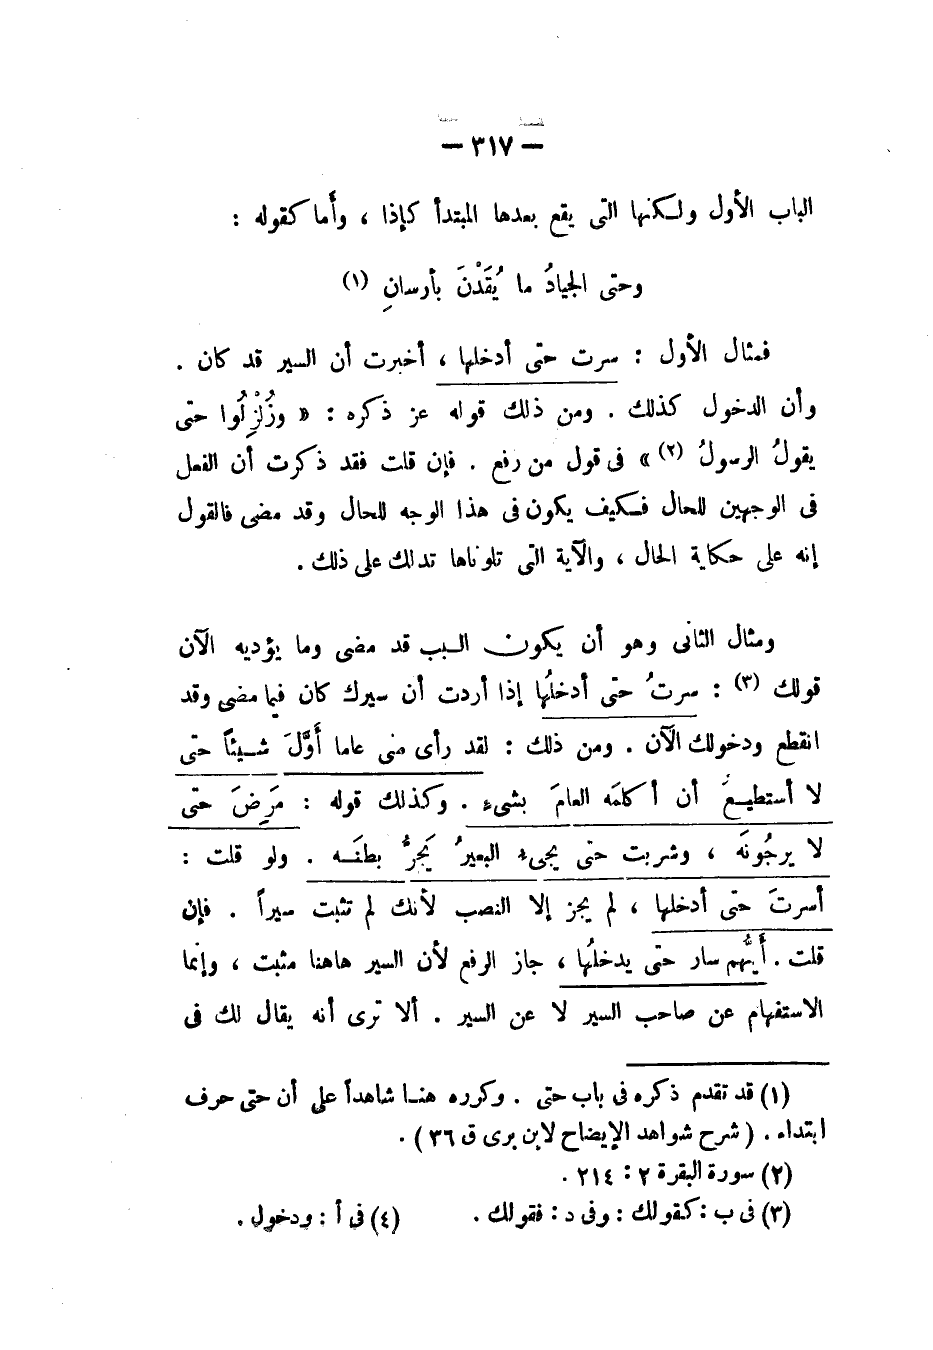 — ٣١٧ —
الباب الأول ولكنها التى يقع بعدها المبتدأ كإذا ، وأما كقوله :
وحتى الجيادُ ما يُقَدْنَ بأرسانِ (١)
فمثال الأول : سرت حتى أدخلها ، أخبرت أن السير قد كان .
وأن الدخول كذلك . ومن ذلك قوله عز ذكره : « وزُلْزِلُوا حتى
يقولُ الرسولُ (٢) » فى قول من رفع . فإن قلت فقد ذكرت أن الفعل
فى الوجهين للحال فكيف يكون فى هذا الوجه للحال وقد مضى فالقول
إنه على حكاية الحال ، والآية التى تلوناها تدلك على ذلك .
ومثال الثانى وهو أن يكون السبب قد مضى وما يؤديه الآن
قولك (٣) : سرتُ حتى أدخلُها إذا أردت أن سيرك كان فيما مضى وقد
انقطع ودخولك الآن . ومن ذلك : لقد رأى منى عاما أَوَّلَ شيئاً حتى
لا أستطيعُ أن أكلمَه العامَ بشىءٍ . وكذلك قوله : مَرِضَ حتى
لا يرجُونَه ، وشربت حتى يجىء البعيرُ يَجرُّ بطنَه . ولو قلت :
أسرتَ حتى أدخلها ، لم يجز إلا النصب لأنك لم تثبت سيراً . فإن
قلت . أَيُّهم سار حتى يدخلُها ، جاز الرفع لأن السير هاهنا مثبت ، وإنما
الاستفهام عن صاحب السير لا عن السير . ألا ترى أنه يقال لك فى
(١) قد تقدم ذكره فى باب حتى . وكرره هنا شاهداً على أن حتى حرف
ابتداء . ( شرح شواهد الإيضاح لابن برى ق ٣٦ ) .
(٢) سورة البقرة ٢ : ٢١٤ .
(٣) فى ب : كقولك : وفى د : فقولك . (٤) فى أ : ودخول .